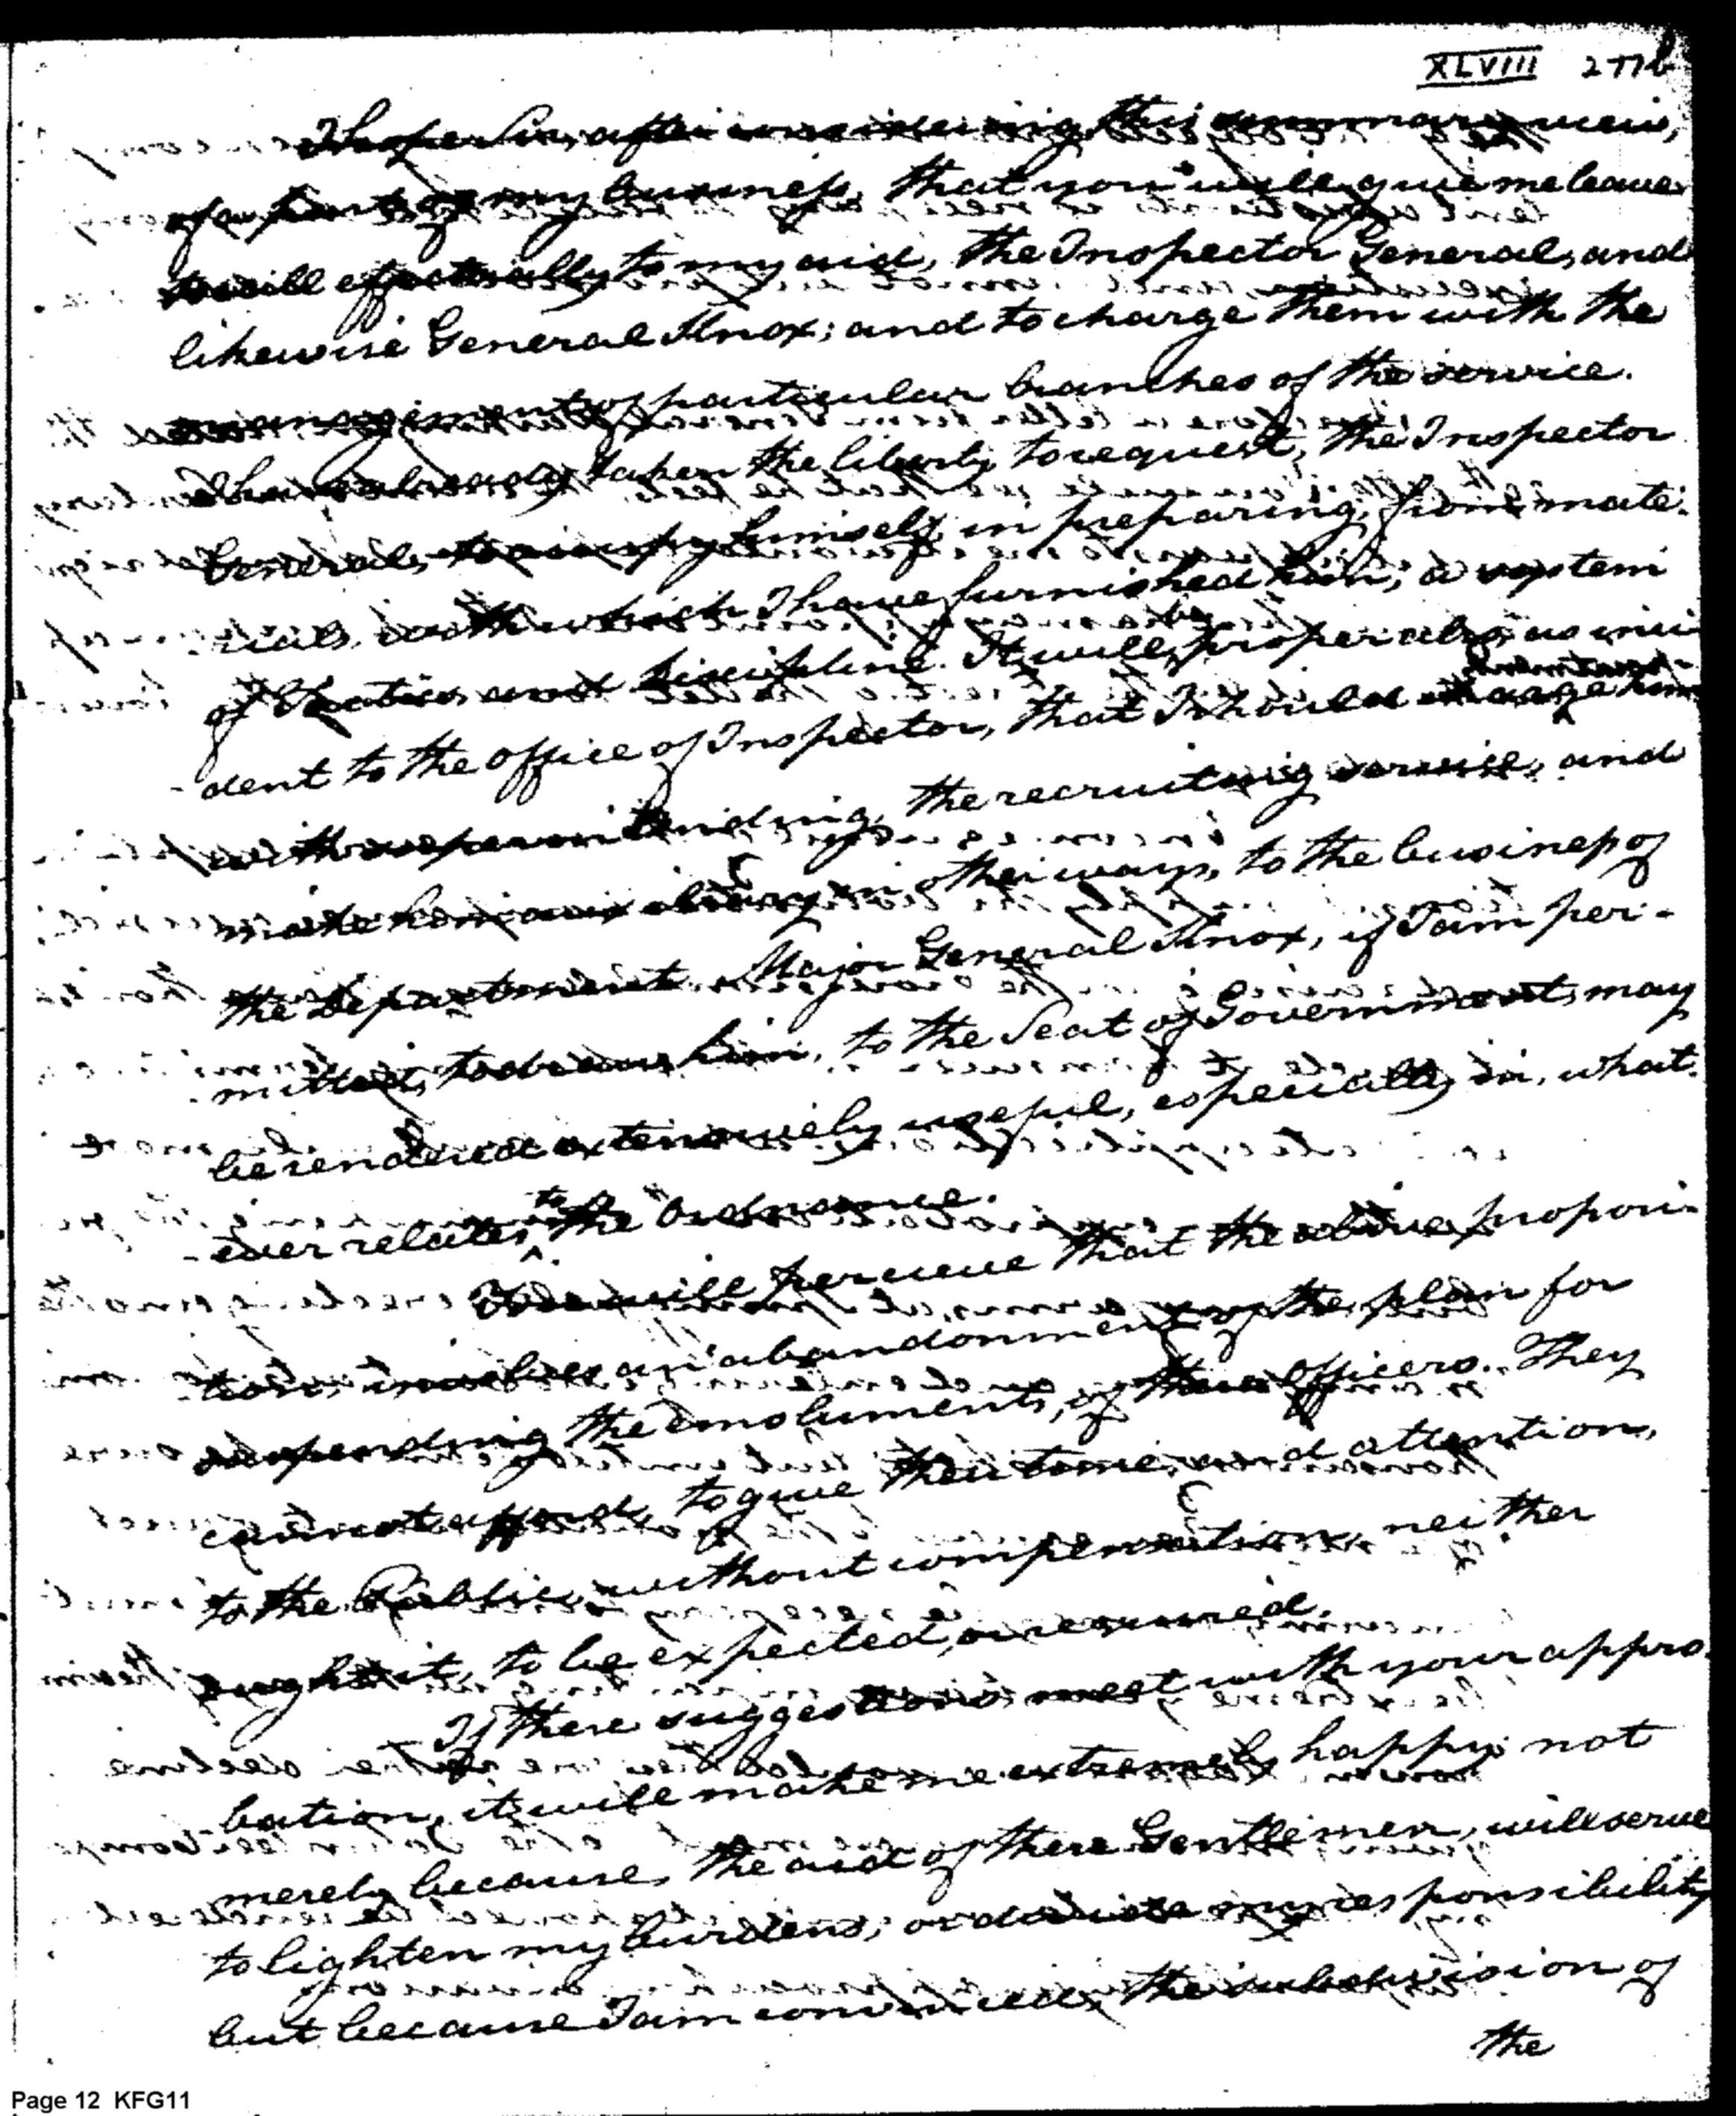 XLVIII 277b
I hope Sir, after considering this summary view,
of a part of my business, that you will give me leave
to call effectually to my aid, the Inspector General, and
likewise General Knox; and to charge them with the
management of particular branches of the service.
I have already taken the liberty to request, the Inspector
General, to occupy himself, in preparing, from mate-
rials with which I have furnished him, a system
of Tactics and discipline. It will be proper also, as inci-
dent to the office of Inspector, that I should charge him
with superintending, the recruiting service, and
make him auxiliary in other ways, to the business of
the Department. Major General Knox, if I am per-
mitted, to draw him, to the Seat of Government, may
be rendered extensively useful, especially in, what-
ever relates to the Ordnance.
You will perceive that the above proposi-
tion, involves an abandonment of the plan for
suspending the emoluments, of these officers. They
cannot afford, to give their time, and attention,
to the Public, without compensation, neither
ought it, to be expected, or required.
If these suggestions meet with your appro-
bation, it will make me extremely happy; not
merely because, the aid of these Gentlemen, will serve
to lighten my burdens, or my responsibility
but because I am convinced, the subdivision of
the
Page 12 KFG11